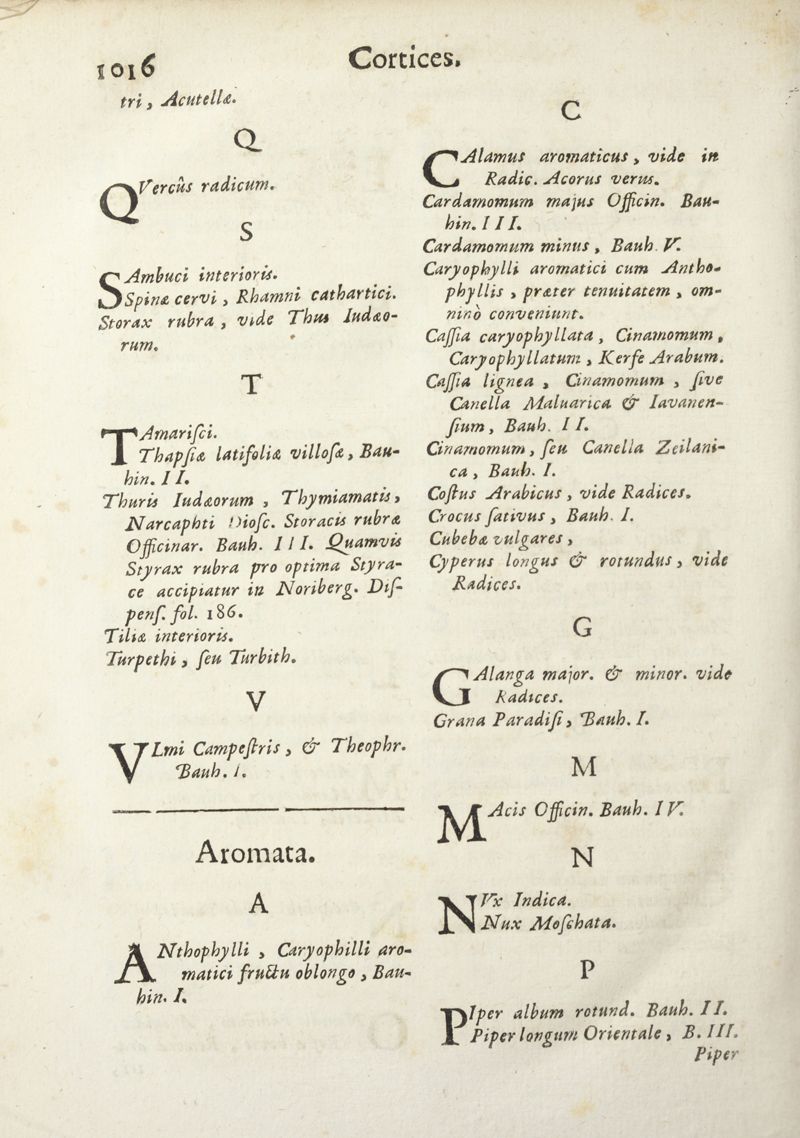 1016
Cortices.
tri, Acutellæ.
Q
QVercûs radicum.
S
SAmbuci interioris.
Spinæ cervi, Rhamni cathartici.
Storax rubra, vide Thus Iudæo-
rum.
T
TAmariſci.
Thapſiæ latifoliæ villoſæ, Bau-
hin. I I.
Thuris Iudæorum, Thymiamatis,
Narcaphti Dioſc. Storacis rubræ
Officinar. Bauh. I I I. Quamvis
Styrax rubra pro optima Styra-
ce accipiatur in Noriberg. Diſ-
penſ. fol. 186.
Tiliæ interioris.
Turpethi, ſeu Turbith.
V
VLmi Campeſtris, & Theophr.
Bauh. I.
Aromata.
A
ANthophylli, Caryophilli aro-
matici fructu oblongo, Bau-
hin. I.
C
CAlamus aromaticus, vide in
Radic. Acorus verus.
Cardamomum majus Officin. Bau-
hin. I I I.
Cardamomum minus, Bauh. V.
Caryophylli aromatici cum Antho-
phyllis, præter tenuitatem, om-
ninò conveniunt.
Caſſia caryophyllata, Cinamomum,
Caryophyllatum, Kerfe Arabum.
Caſſia lignea, Cinamomum, ſive
Canella Maluarica & Iavanen-
ſium, Bauh. I I.
Cinamomum, ſeu Canella Zeilani-
ca, Bauh. I.
Coſtus Arabicus, vide Radices.
Crocus ſativus, Bauh. I.
Cubebæ vulgares,
Cyperus longus & rotundus, vide
Radices.
G
GAlanga major. & minor. vide
Radices.
Grana Paradiſi, Bauh. I.
M
MAcis Officin. Bauh. I V.
N
NVx Indica.
Nux Moſchata.
P
PIper album rotund. Bauh. I I.
Piper longum Orientale, B. III.
Piper